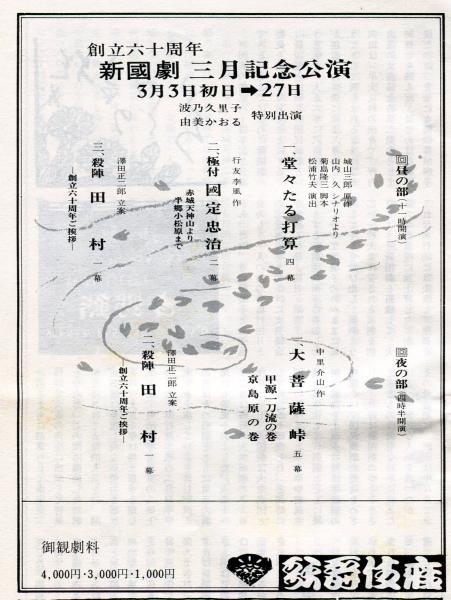 創立六十周年
新國劇 三月記念公演
3月3日初日➡27日
波乃久里子
由美かおる
特別出演
回昼の部(十一時開演)
城山三郎 原作
山内 久 シナリオより
菊島隆三 脚本
松浦竹夫 演出
一、堂々たる打算 四幕
行友李風 作
二、極付 國定忠治 二幕
赤城天神山より
半郷小松原まで
澤田正二郎 立案
三、殺陣 田村 一幕
―創立六十周年ご挨拶―
回夜の部(四時半開演)
中里介山 作
一、大菩薩峠 五幕
甲源一刀流の巻
京島原の巻
澤田正二郎 立案
二、殺陣 田村 一幕
―創立六十周年ご挨拶―
御観劇料
4,000円・3,000円・1,000円
歌舞伎座